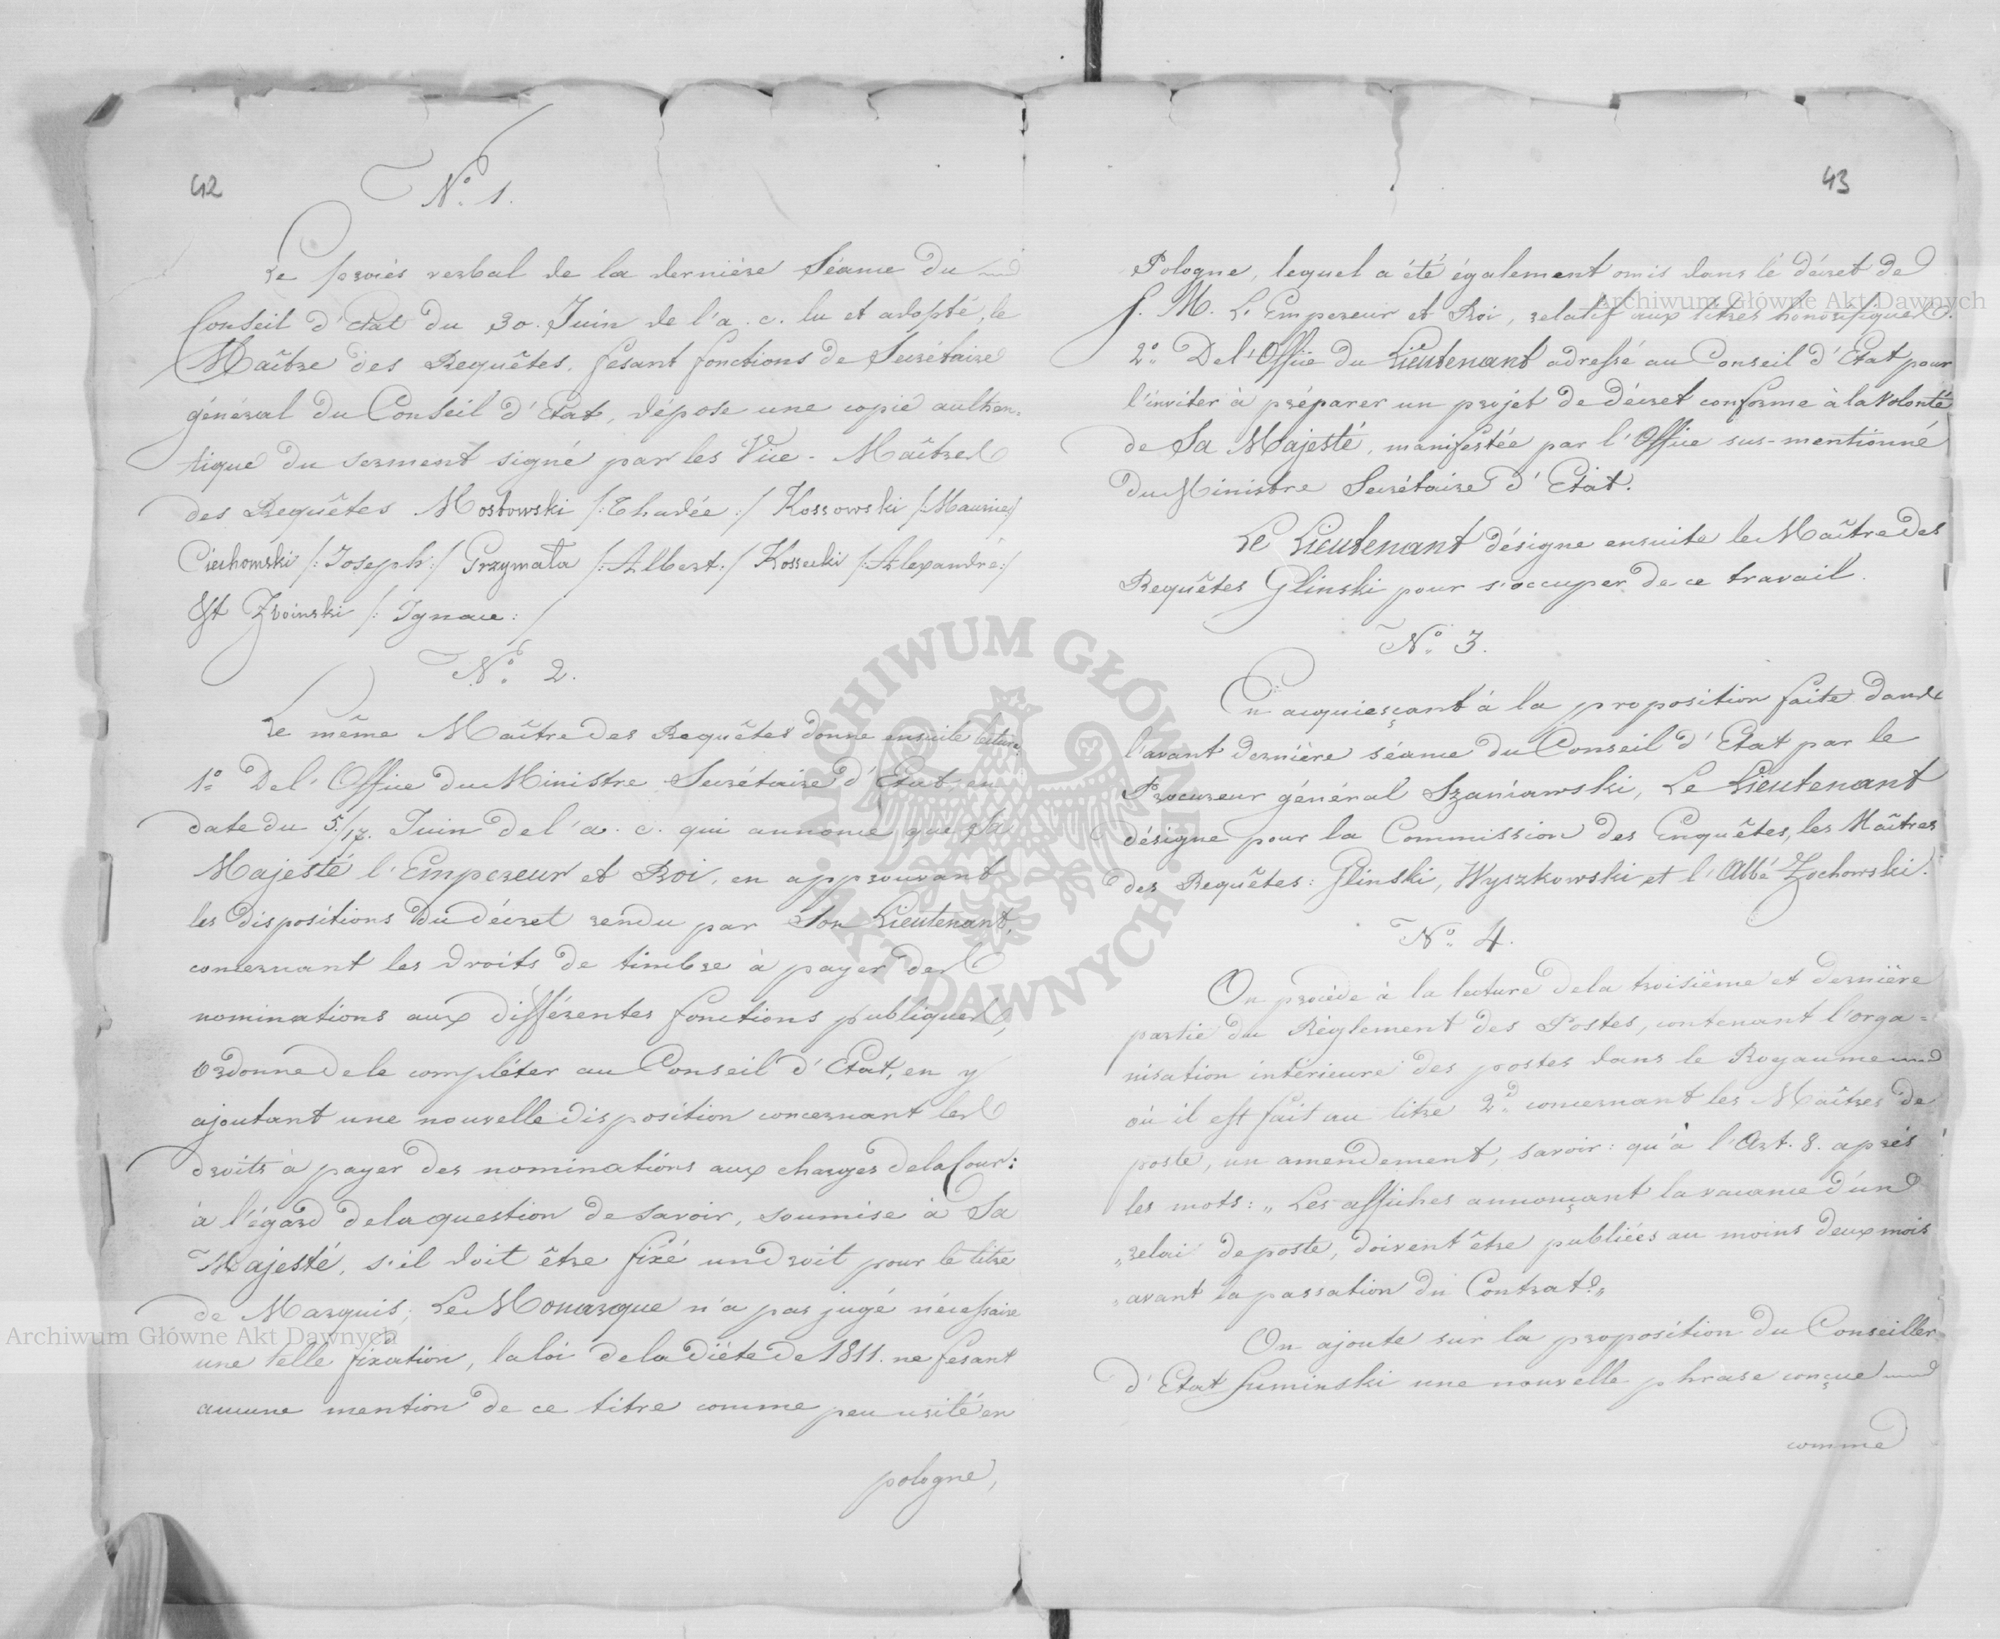 42
Nº 1.
Le procès verbal de la dernière Séance du
Conseil d'Etat du 30. Juin de l'a. c. lu et adopté, le
Maître des Requêtes, fesant fonctions de Secrétaire
général du Conseil d'Etat, dépose une copie authen-
tique du serment signé par les Vice-Maîtres
des Requêtes Mostowski /:Thadée:/ Kossowski /:Maurice/
Ciechomski /:Joseph:/ Grzymała /:Albert:/ Kossecki /:Alexandre:/
Et Zboinski /:Ignace:/
Nº 2.
Le même Maître des Requêtes donne ensuite lecture
1º De l'Office du Ministre Secrétaire d'Etat en
date du 5/17. Juin de l'a. c. qui annonce que Sa
Majesté l'Empereur et Roi, en approuvant
les dispositions du décret rendu par Son Lieutenant,
concernant les droits de timbre à payer des
nominations aux différentes fonctions publiques,
ordonne de le compléter au Conseil d'Etat, en y
ajoutant une nouvelle disposition concernant les
droits à payer des nominations aux charges de la Cour:
à l'égard de la question de savoir, soumise à Sa
Majesté, s'il doit être fixé un droit pour le titre
de Marquis; Le Monarque n'a pas jugé nécessaire
une telle fixation, la loi de la diète de 1811. ne fesant
aucune mention de ce titre comme peu usité en
pologne,
43
Pologne, lequel a été également omis dans le décret de
S. M. L'Empereur et Roi, relatif aux titres honorifiques.
2º De l'Office du Lieutenant adressé au Conseil d'Etat pour
l'inviter à préparer un projet de décret conforme à la volonté
de Sa Majesté, manifestée par l'Office sus-mentionné
du Ministre Secrétaire d'Etat.
Le Lieutenant désigne ensuite le Maître des
Requêtes Glinski pour s'occuper de ce travail.
Nº 3.
En acquiesçant à la proposition faite dans
l'avant dernière séance du Conseil d'Etat par le
Procureur général Szaniawski, Le Lieutenant
désigne pour la Commission des Enquêtes, les Maîtres
des Requêtes: Glinski, Wyszkowski et l'Abbé Zochowski.
Nº 4.
On procède à la lecture de la troisième et dernière
partie du Règlement des Postes, contenant l'orga-
nisation intérieure des postes dans le Royaume
où il est fait au titre 2d concernant les Maîtres de
poste, un amendement, savoir: qu'à l'Art. 8. après
les mots: „ Les affiches annonçant la vacance d'un
„ relai de poste, doivent être publiées au moins deux mois
„ avant la passation du Contrat.„
On ajoute sur la proposition du Conseiller
d'Etat Suminski une nouvelle phrase conçue
comme
Archiwum Główne Akt Dawnych
Archiwum Główne Akt Dawnych
ARCHIWUM GŁÓWNE AKT DAWNYCH